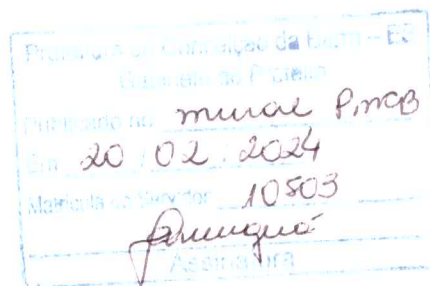 Prefeitura de Conceição da Barra - ES
Gabinete do Prefeito
Publicado no mural PMCB
Em 20 / 02 / 2024
Matrícula do Servidor 10503
Assinatura